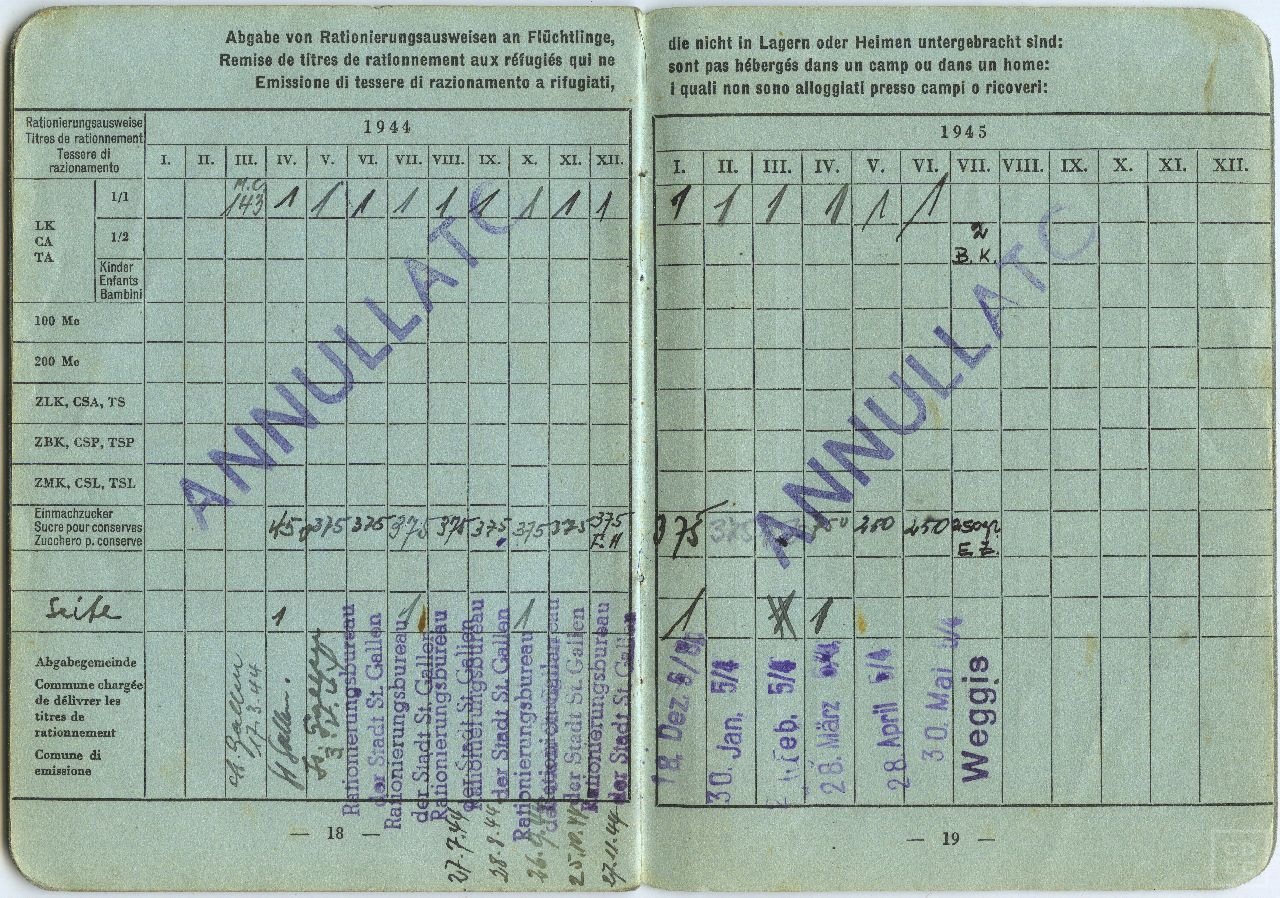 Abgabe von Rationierungsausweisen an Flüchtlinge,
Remise de titres de rationnement aux réfugiés qui ne
Emissione di tessere di razionamento a rifugiati,
Rationierungsausweise
Titres de rationnement
Tessere di
razionamento
1944
I. II. III. IV. V. VI. VII. VIII. IX. X. XI. XII.
LK
CA
TA
1/1
M.C.
143 1 1 1 1 1 1 1 1 1
1/2
Kinder
Enfants
Bambini
100 Mc
200 Mc
ZLK, CSA, TS
ZBK, CSP, TSP
ZMK, CSL, TSL
Einmachzucker
Sucre pour conserves
Zucchero p. conserve
450 375 375 375 375 375 375 375 375
F. H
Seife 1 1 1
Abgabegemeinde
Commune chargée
de délivrer les
titres de
rationnement
Comune di
emissione
St. Gallen
17.3.44
St Gallen.
Rationierungsbureau
der Stadt St. Gallen
Rationierungsbureau
der Stadt St. Gallen
Rationierungsbureau
der Stadt St. Gallen
27.7.44
Rationierungsbureau
der Stadt St. Gallen
28.8.44
Rationierungsbureau
der Stadt St. Gallen
25.10.44
Rationierungsbureau
der Stadt St. Gallen
27.11.44
ANNULLATO
— 18 —
die nicht in Lagern oder Heimen untergebracht sind:
sont pas hébergés dans un camp ou dans un home:
i quali non sono alloggiati presso campi o ricoveri:
1945
I. II. III. IV. V. VI. VII. VIII. IX. X. XI. XII.
1 1 1 1 1 1
2
B. K.
375 375 250 250 250 250 gr
E Z.
1 1
18. Dez.
30. Jan. 5/4
Feb. 5/4
28. März 5/4
28. April 5/4
30. Mai 5/4
Weggis
ANNULLATO
— 19 —